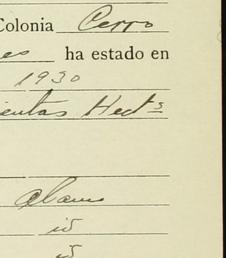 Colonia Cerro
es ha estado en
1930
ientas Hect s
Alamo
id
id